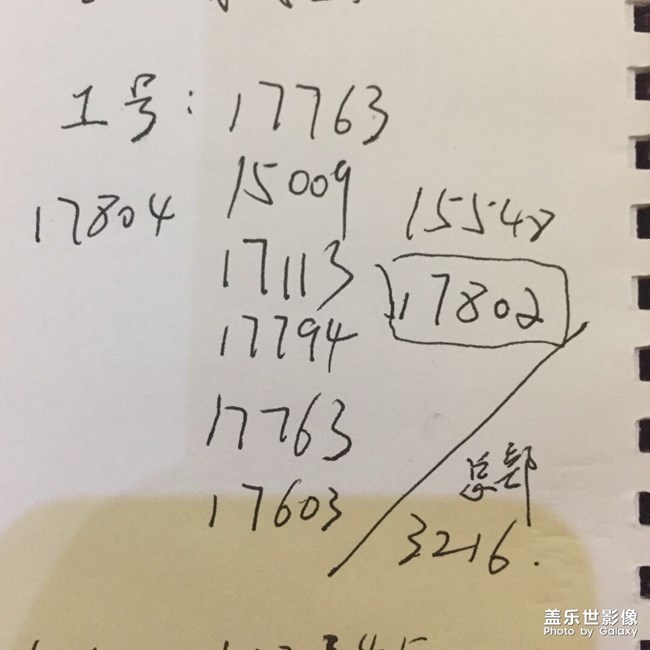 工号：17763
15009
17804
15548
17113
17802
17794
17763
17603
总部
3216.
盖乐世影像
Photo by Galaxy